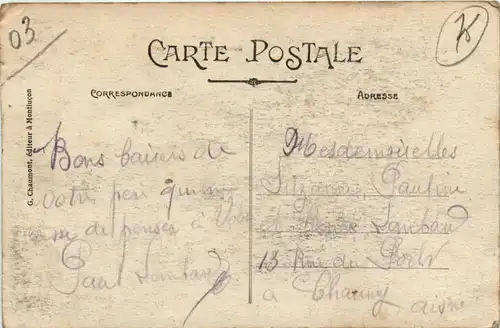 03
CARTE POSTALE
CORRESPONDANCE
ADRESSE
G. Chaumont, éditeur à Montluçon
Bons baisers de
votre
penser à
Paul Lombard
Mesdemoiselles
Suzanne, Pauline
et Lombard
13 Rue du Port
à Chauny
aisne